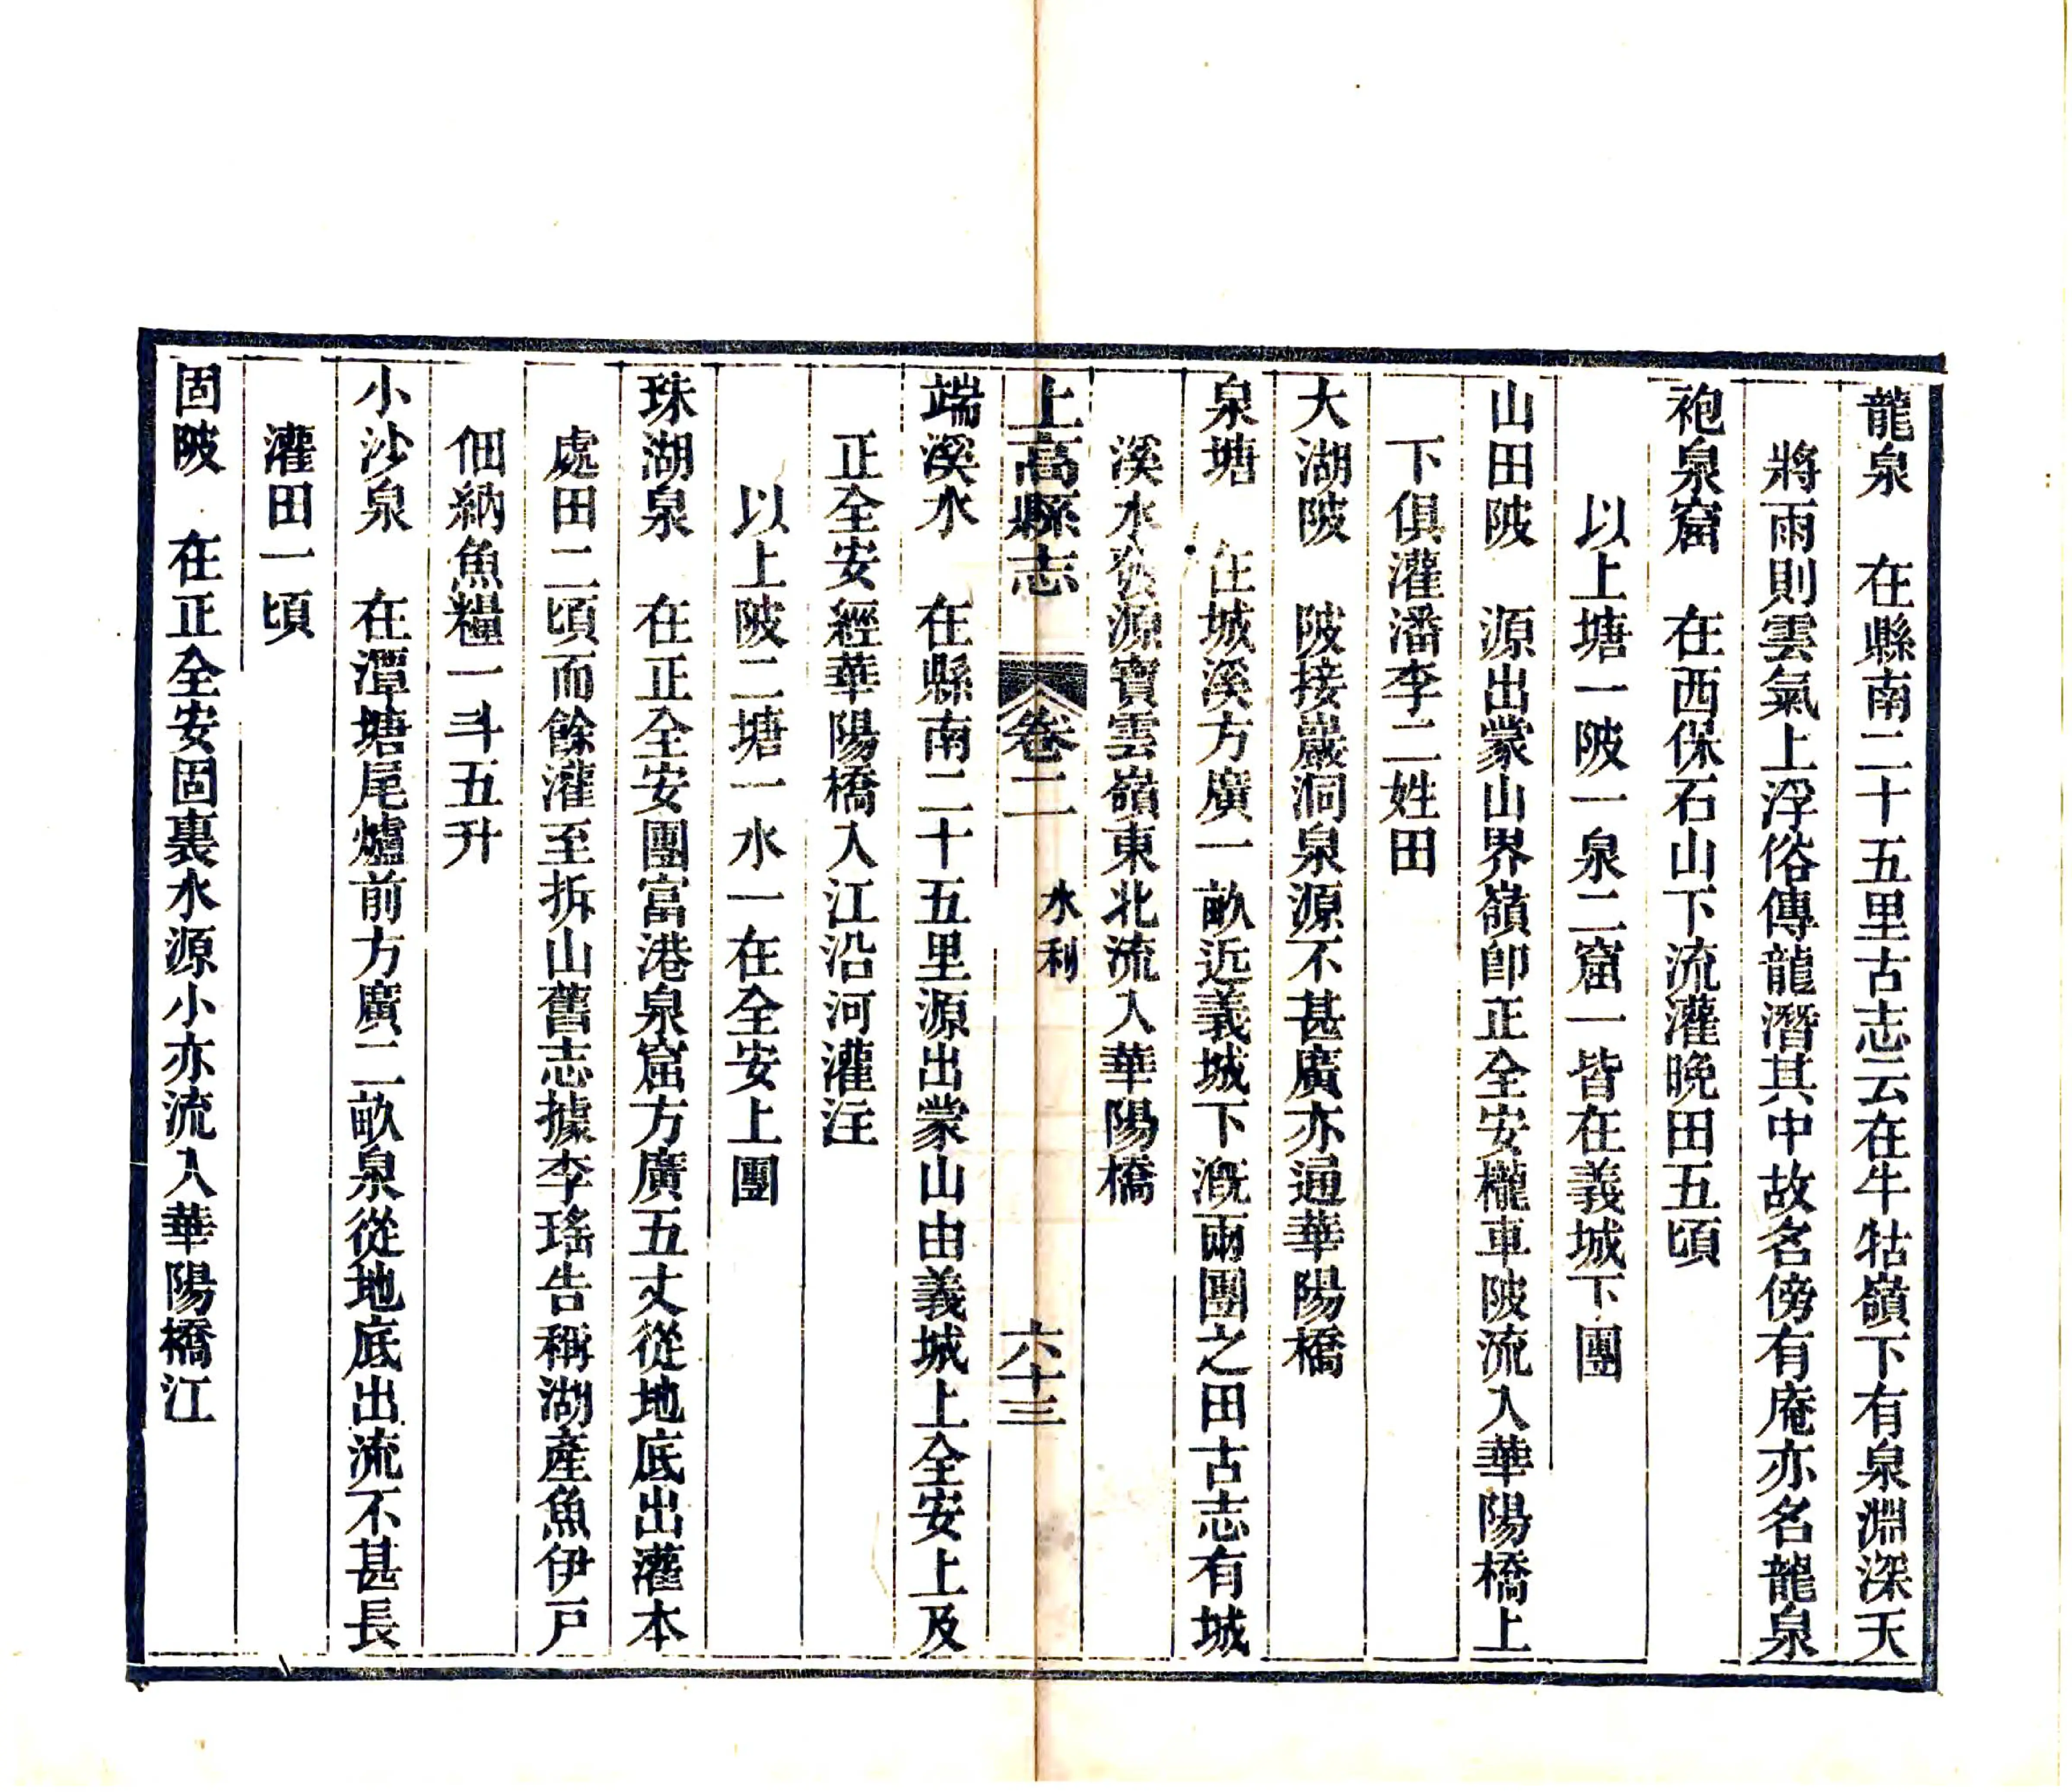 龍泉　在縣南二十五里古志云在牛牯嶺下有泉淵深天
將雨則雲氣上浮俗傳龍潛其中故名傍有庵亦名龍泉
袍泉窟　在西保石山下流灌晚田五頃
以上塘一陂一泉二窟一皆在義城下團
山田陂　源出蒙山界嶺卽正全安櫳車陂流入華陽橋上
下俱灌潘李二姓田
大湖陂　陂接巖洞泉源不甚廣亦通華陽橋
泉塘　在城溪方廣一畝近義城下漑兩團之田古志有城
溪水發源寶雲嶺東北流入華陽橋
上高縣志　卷二　水利　六十三
端溪水　在縣南二十五里源出蒙山由義城上全安上及
正全安經華陽橋入江沿河灌注
以上陂二塘一水一在全安上團
珠湖泉　在正全安團富港泉窟方廣五丈從地底出灌本
處田二頃而餘灌至拆山舊志據李瑤告稱湖產魚伊戸
佃納魚糧一斗五升
小沙泉　在潭塘尾爐前方廣二畝泉從地底出流不甚長
灌田一頃
固陂　在正全安固裏水源小亦流入華陽橋江